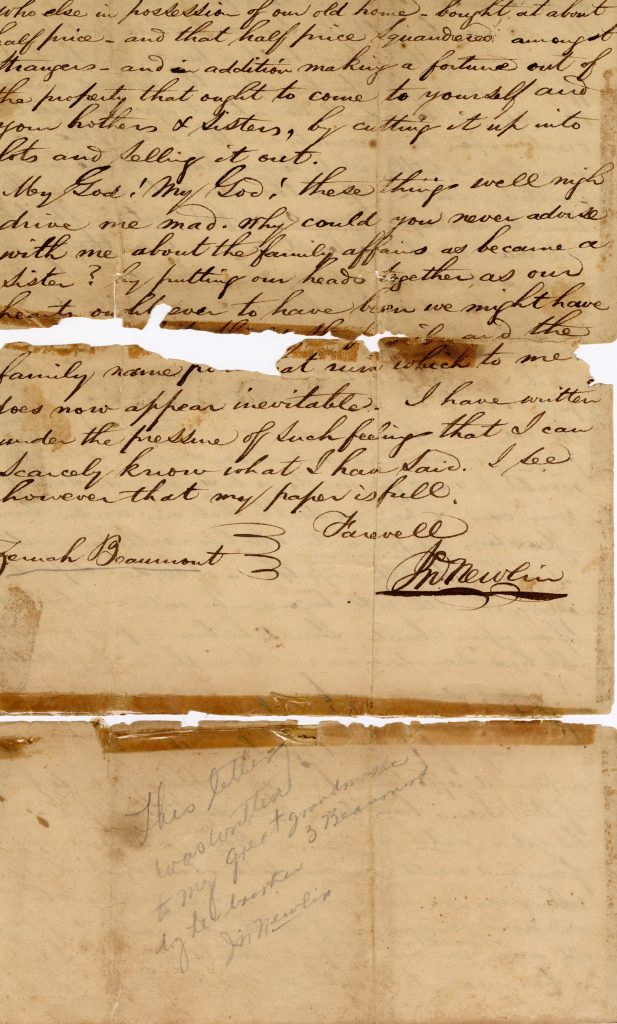 who else in possession of our old home - bought at about
half price - and that half price squandered amongst
strangers - and in addition making a fortune out of
the property that ought to come to yourself and
your brothers & sisters, by cutting it up into
lots and selling it out.
My God! My God! these things well nigh
drive me mad. Why could you never advise
with me about the family affairs as became a
sister? by putting our heads together, as our
hearts ought ever to have been we might have
and the
family name from that ruin which to me
does now appear inevitable. I have written
under the pressure of such feeling that I can
scarcely know what I have said. I see
however that my paper is full.
Farewell
Zeruah Beaumont
Jn Newlin
This letter
was written
to my great grandmother
Z Beaumont
by her brother
Jn Newlin